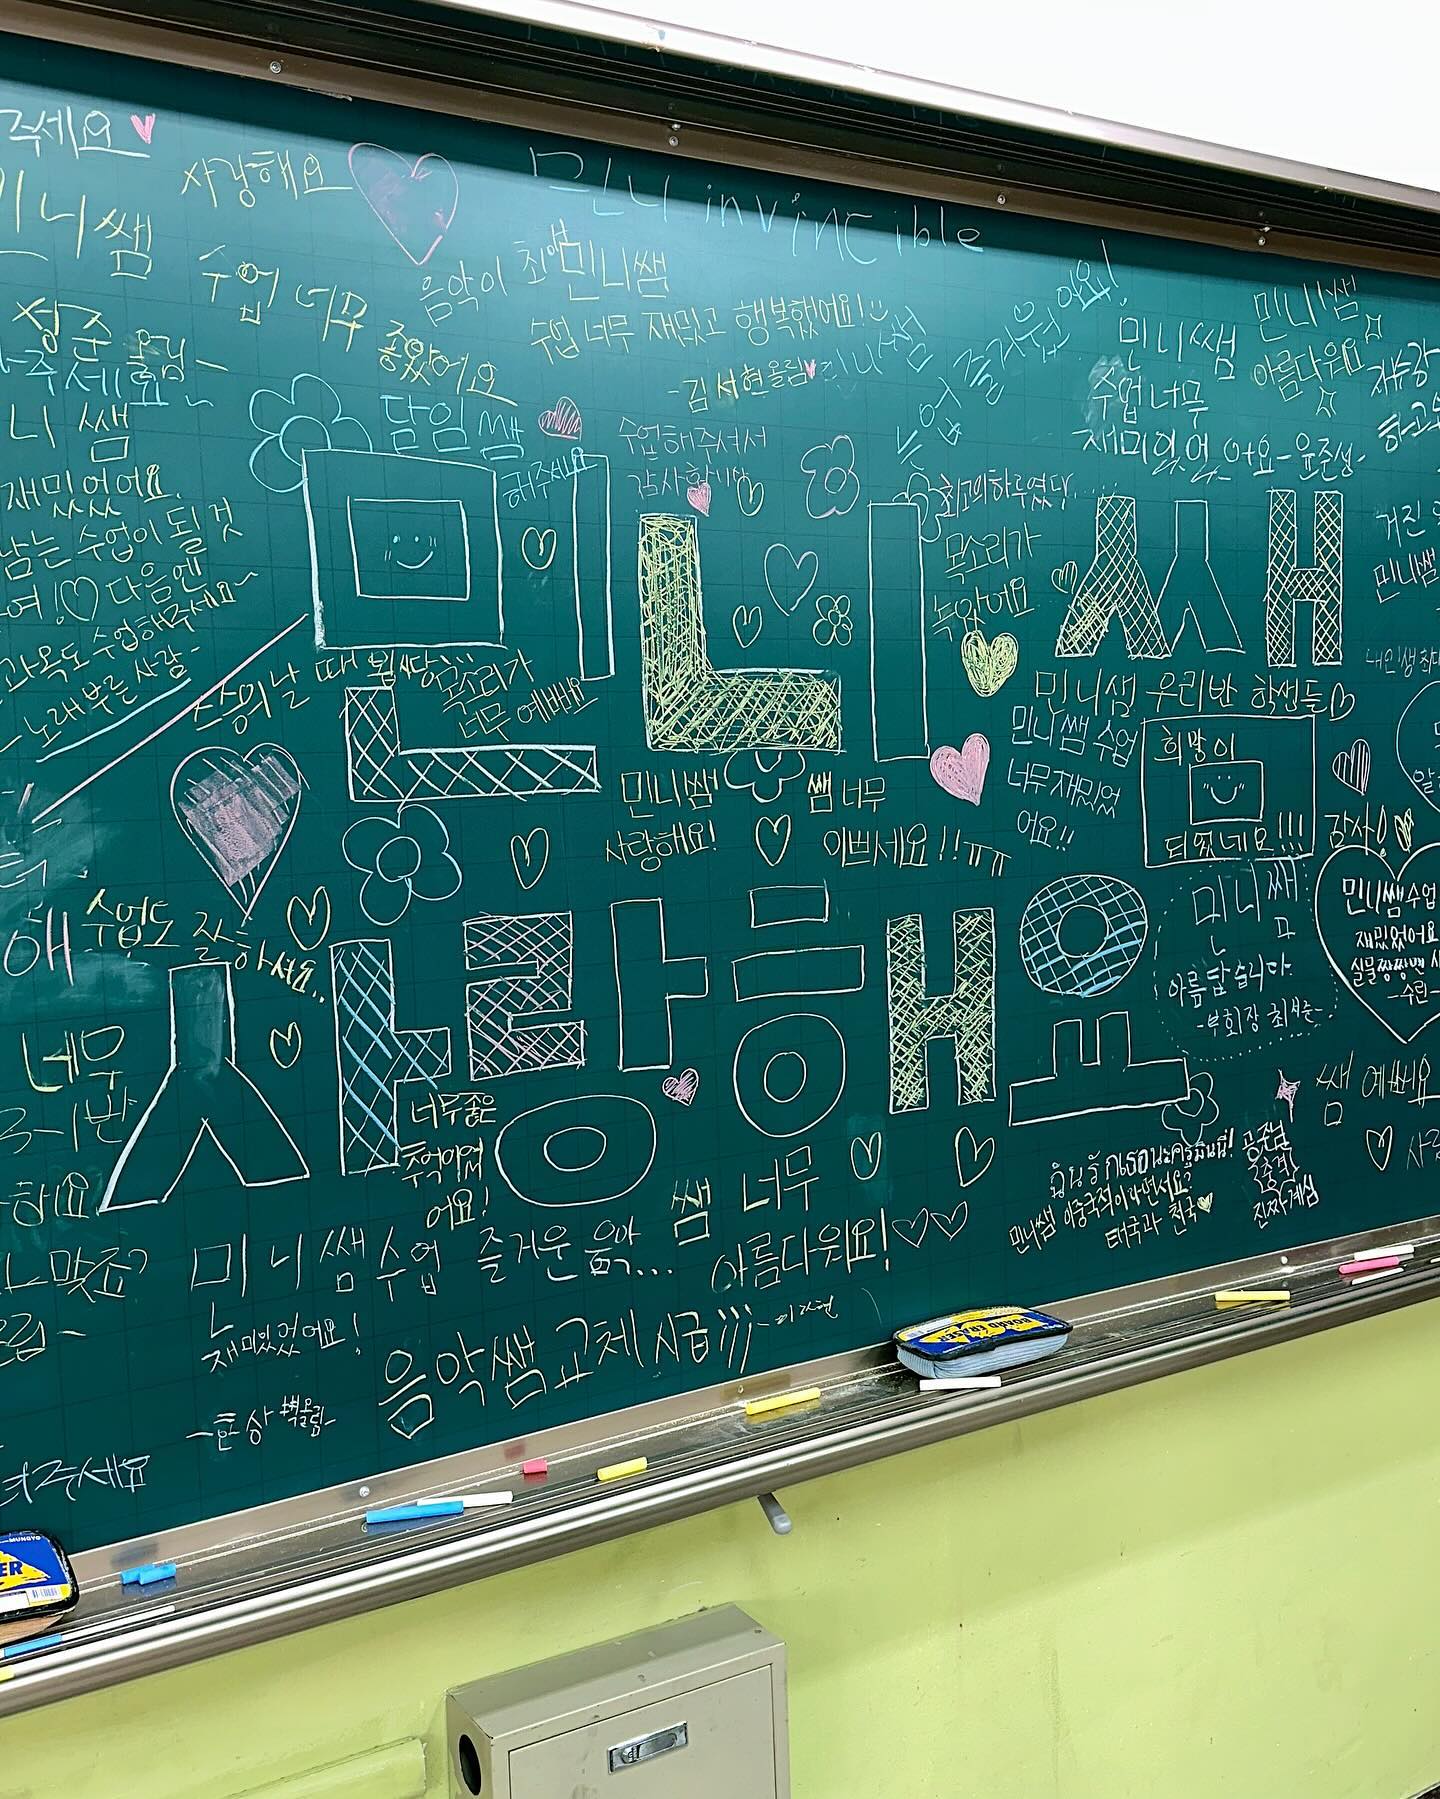 주세요
사랑해요
민니 invincible
민니쌤
수업 너무
좋았어요
음악이 최애 민니쌤
수업 너무 재밌고 행복했어요!
-김서현올림
즐거웠어요!
민니쌤
수업 너무
재미있었어요-윤준생-
민니쌤
아름다워요
정준 올림~
니 쌤
재밌었어요.
남는 수업이 될 것
여! 다음엔
과목도 수업해주세요~
노래부를 사람-
담임쌤
해주세요
수업해주셔서
감사합니다
최고의 하루였다...
목소리가
녹았어요
민니쌤
스승의날 때 봽시당
목소리가
너무 예뻐요
민니쌤
사랑해요!
쌤 너무
이쁘세요!!ㅠㅠ
민니쌤 우리반 학생들
민니쌤 수업
너무재밌었
어요!!
희망이
되었네요!!!
감사!
해
수업도 잘하셔요..
사랑해요
민니쌔
ㅁ
아름답습니다.
-부회장 최서준-
민니쌤수업
재밌었어요
실물짱짱맨
-수린-
너무
3-1반
너무좋은
추억이었
어요!
쌤 너무
아름다워요!
쌤 예뻐요
ฉันรักเธอนะครูมินนี่!
민니쌤 이중국적이라면서요?
태국과 천국
공주님
중격
진짜계심
민니쌤 수업
재미있었어요!
즐거운 음악...
음악쌤 교체 시급!!!
BOARD ERASER
주세요
MUNGYO